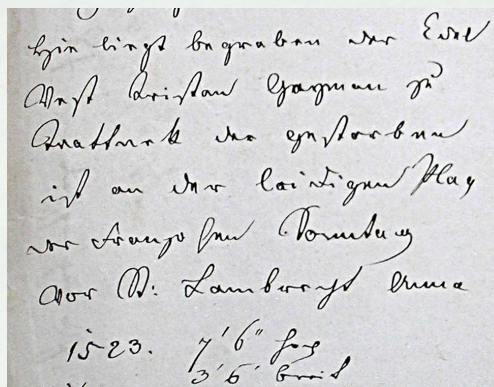 Hie liegt begraben der Edel
Vest Kristan Gayman zu
Krattnek der gestorben
ist an der laidigen Plag
der Franzosen Sonntag
vor St: Lambrecht Anna
1523. 7' 6" hoch
3' 6' breit